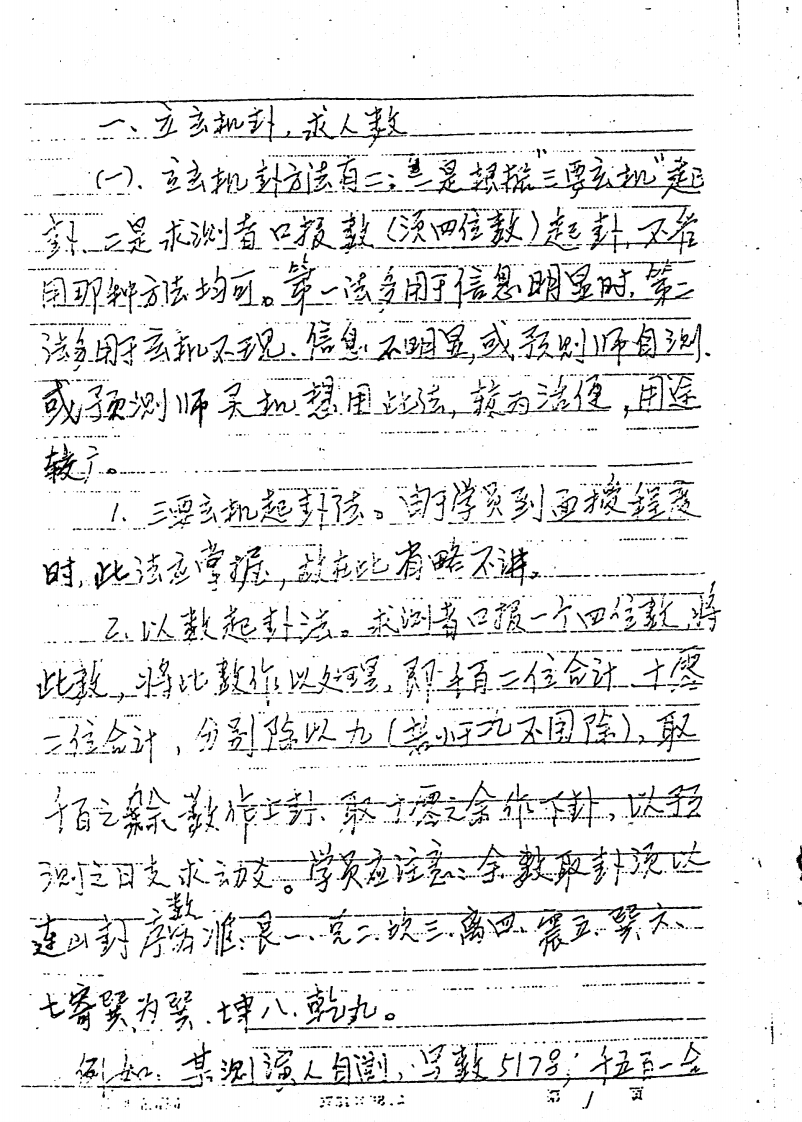 一、立玄机卦，求人数
(一)、立玄机卦方法有二：一是根据“三要玄机”起
卦、二是求测者口报数（须四位数）起卦，不管
用那种方法均可。第一法多用于信息明显时，第二
法多用于玄机不现、信息不明显，或预测师自测，
或预测师灵机想用此法，较为活便，用途
较广。
1. 三要玄机起卦法。由于学员到面授程度
时，此法应掌握，故在此省略不讲。
2. 以数起卦法。求测者口报一个四位数，将
此数，将此数作以处理，即千百二位合计，十零
二位合计，分别除以九（若小于九不用除），取
千百之余数作上卦、取十零之余作下卦，以预
测之日支求动爻。学员应注意：余数取卦须以
连山卦序数为准：艮一、兑二、坎三、离四、震五、巽六、
七寄巽为巽、坤八、乾九。
例如：某测演人自测，写数517号；千五百一合
第 1 页